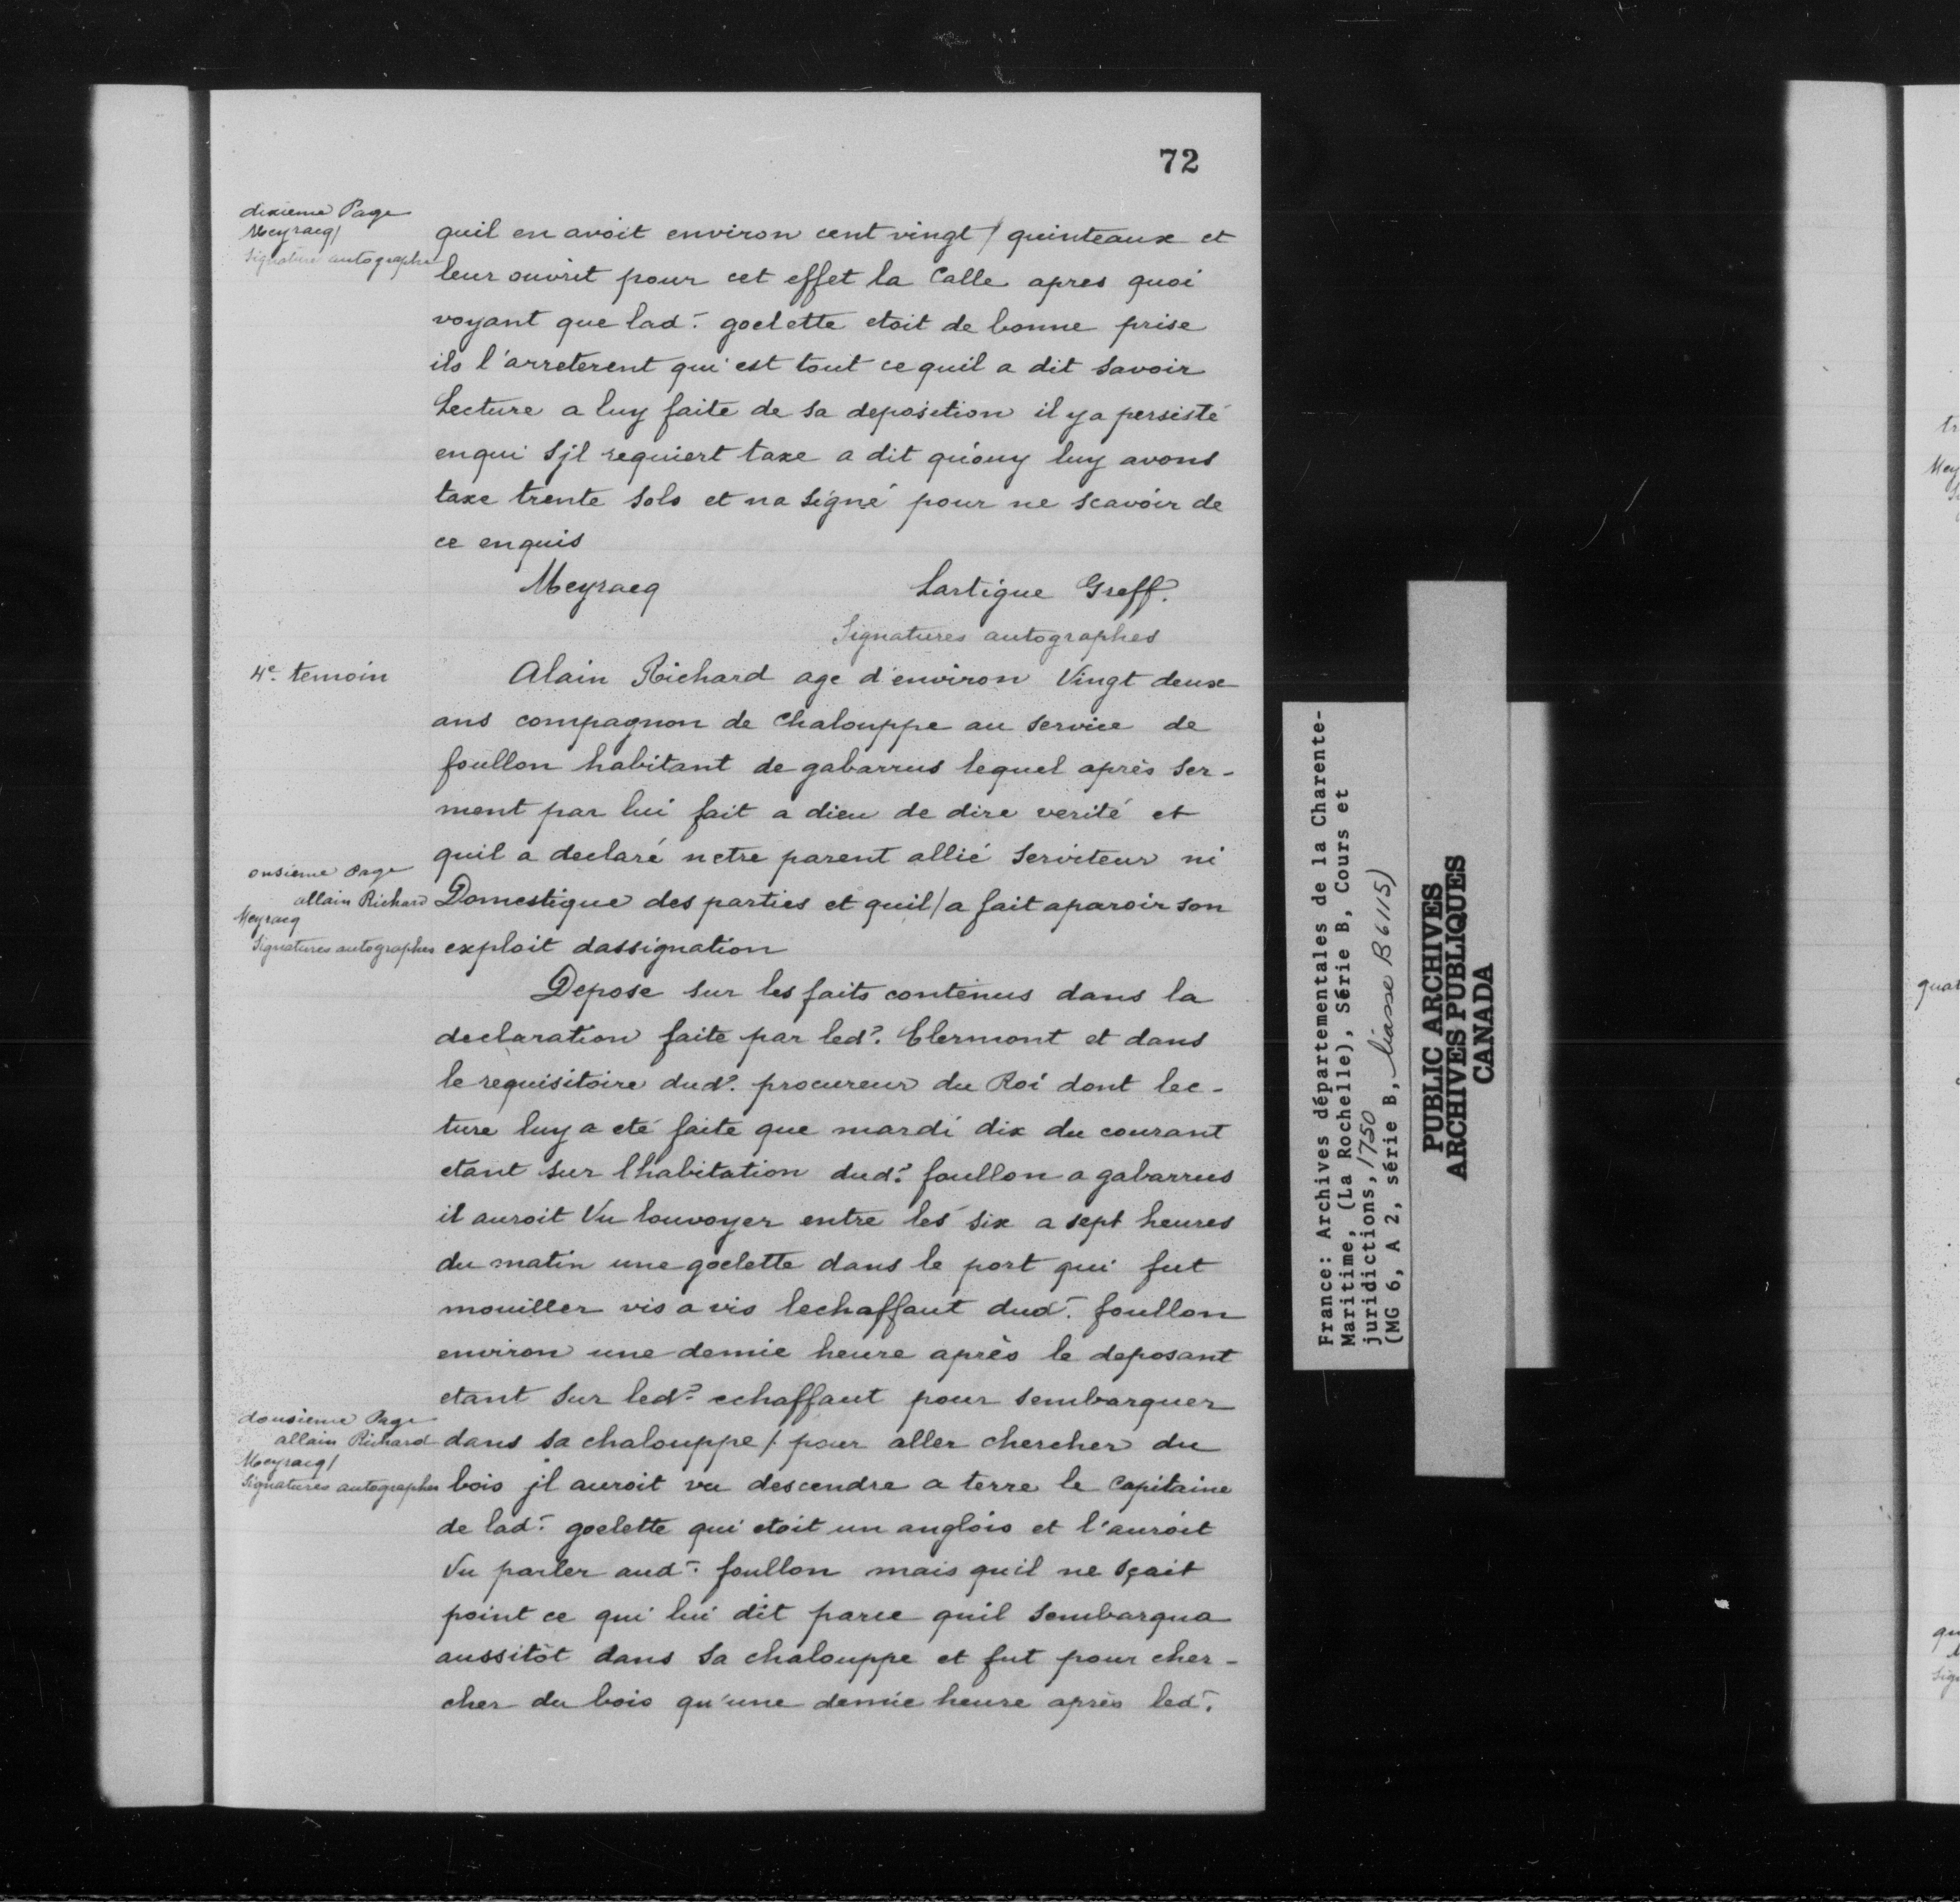 72
dixieme Page
Meyracq/
Signature autographe
quil en avoit environ cent vingt / quinteaux et
leur ouvrit pour cet effet la Calle apres quoi
voyant que lad. goelette etoit de bonne prise
ils l'arreterent qui est tout ce quil a dit savoir
Lecture a luy faite de sa deposition il y a persisté
enqui sjl requiert taxe a dit qu'ouy luy avons
taxe trente sols et na signé pour ne scavoir de
ce enquis
Meyracq Lartigue Greff.
Signatures autographes
4e. temoin
Alain Richard age d'environ Vingt deux
ans compagnon de Chalouppe au service de
foullon habitant de gabarrus lequel après ser-
ment par lui fait a dieu de dire verité et
quil a declaré netre parent allié Serviteur ni
onsieme Page
allain Richard
Meyracq
Signatures autographes
Domestique des parties et quil / a fait aparoir son
exploit dassignation
Depose sur les faits contenus dans la
declaration faite par led. Clermont et dans
le requisitoire dud. procureur du Roi dont lec-
ture luy a eté faite que mardi dix du courant
etant sur lhabitation dud. foullon a gabarrus
il auroit Vu louvoyer entre les six a sept heures
du matin une goelette dans le port qui fut
mouiller vis a vis lechaffaut dud. foullon
environ une demie heure après le deposant
etant sur led. echaffaut pour sembarquer
dousieme Page
allain Richard
Meyracq/
Signatures autographes
dans sa chalouppe / pour aller chercher du
bois jl auroit vu descendre a terre le Capitaine
de lad. goelette qui etoit un anglois et l'auroit
Vu parler aud. foullon mais quil ne sçait
point ce qui lui dit parce quil sembarqua
aussitôt dans sa chalouppe et fut pour cher-
cher du bois qu'une demie heure après led.
France: Archives départementales de la Charente-
Maritime, (La Rochelle), Série B, Cours et
juridictions, 1750
(MG 6, A 2, série B, liasse B 6115)
PUBLIC ARCHIVES
ARCHIVES PUBLIQUES
CANADA